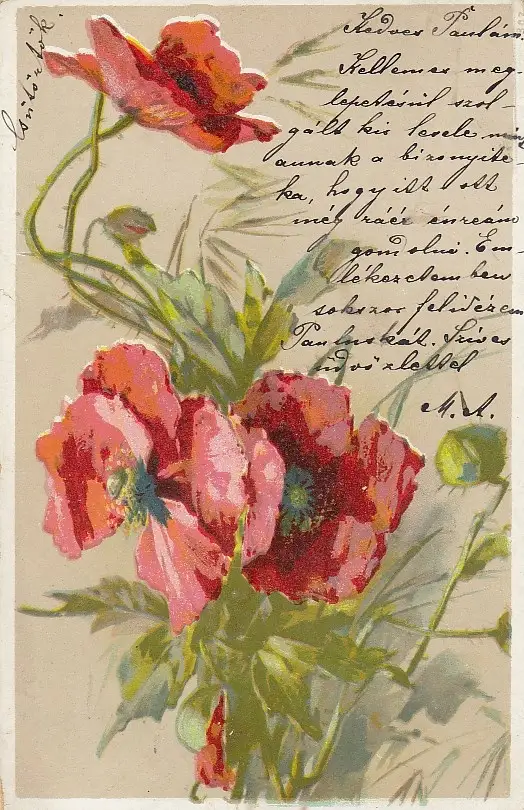 Csütörtök.
Kedves Paulám.
Kellemes meg-
lepetésül szol-
gált kis levele mint
annak a bizonyíté-
ka, hogy itt ott
még ráér énreám
gondolni. Em-
lékezetemben
sokszor felidézem
Pauluskát. Szives
üdvözlettel
M. A.